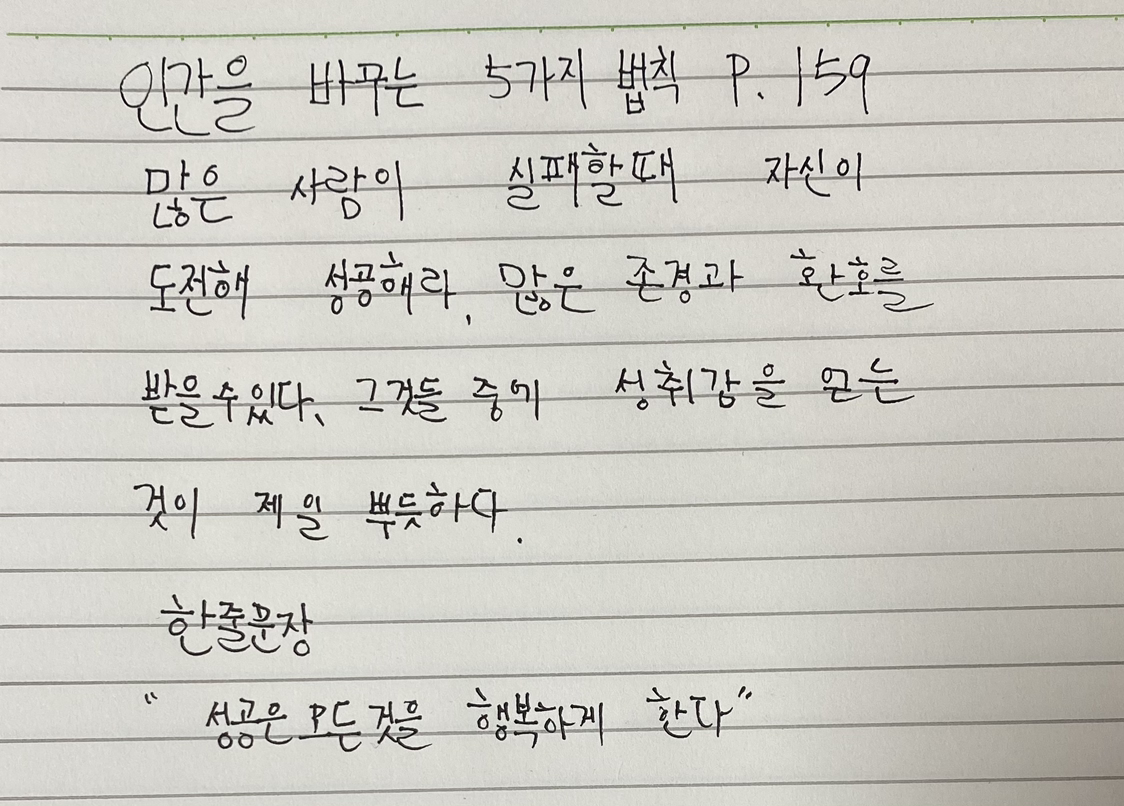 인간을 바꾸는 5가지 법칙 P. 159
많은 사람이 실패할때 자신이
도전해 성공해라, 많은 존경과 환호를
받을수있다. 그것들 중에 성취감을 얻는
것이 제일 뿌듯하다.
한줄문장
“ 성공은 모든것을 행복하게 한다”